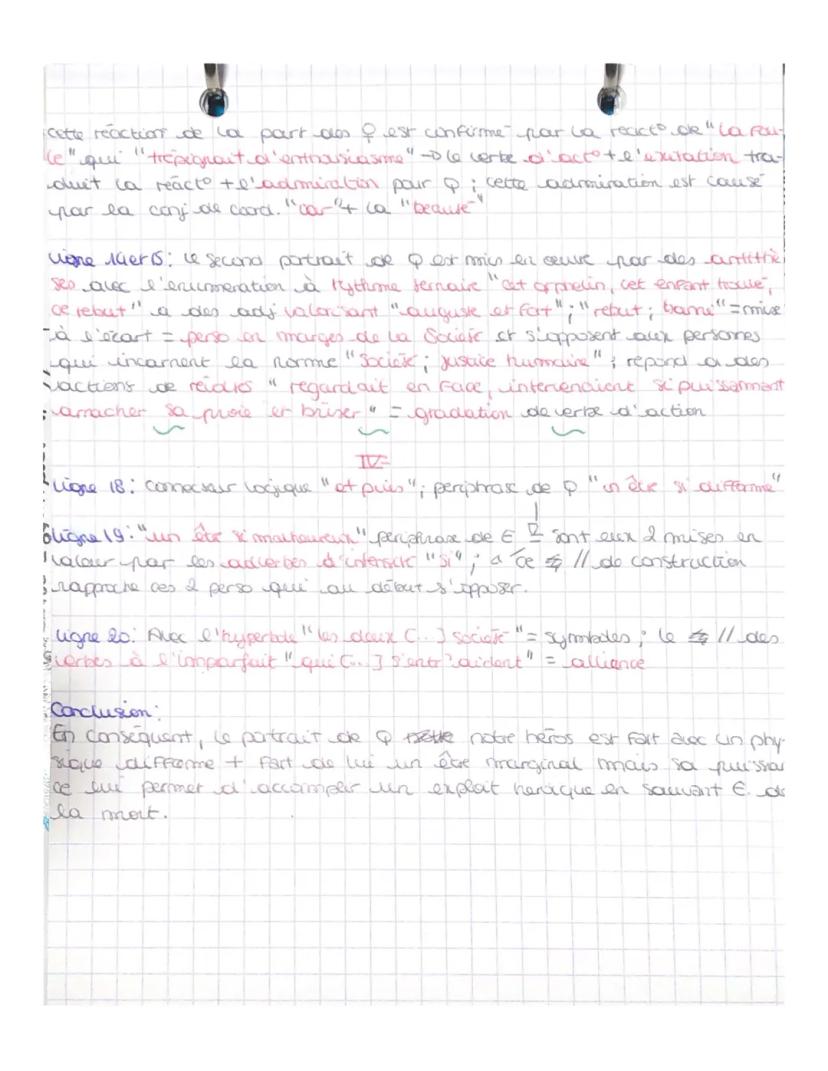 cette réaction de la part des ♀ est confirmé par la reacto de "la fou-
le" qui "trépignait d'enthousiasme" → le verbe d'acto + l'exaltation tra-
duit la réacto + l'admiration pour Q ; cette admiration est causé
par la conj de coord. "car" + la "beauté"
Ligne 14 et 15 : le second portrait de Q est mis en œuvre par des antithè
ses avec l'énumération à rythme ternaire "cet orphelin, cet enfant trouvé,
ce rebut" a des adj valorisant "auguste et fort" ; "rebut ; banni" = mise
à l'écart = perso en marges de la Société et s'opposent aux personnes
qui incarnent la norme "Société ; justice humaine" ; répond a des
actions de "regardait en face, intervenaient si puissamment
arracher sa proie et briser" = gradation de verbe d'action
IV-
Ligne 18 : connecteur logique "et puis" ; periphrase de Q "un être si difforme"
ligne 19 : "un être si malheureux" periphrase de E sont eux 2 mises en
valeur par les adverbes d'intensité "si" ; a ce // de construction
rapproche ces 2 perso qui au début s'opposer.
Ligne 20 : Avec l'hyperbole "les deux (...] société" = symboles ; le // des
verbes à l'imparfait "qui (...] s'entr'aident" = alliance
Conclusion :
En conséquant, le portrait de Q notre héros est fait avec un phy-
sique difforme + fart de lui un être marginal mais sa puissan
ce lui permet d'accomplir un exploit héroïque en sauvant E. de
la mort.